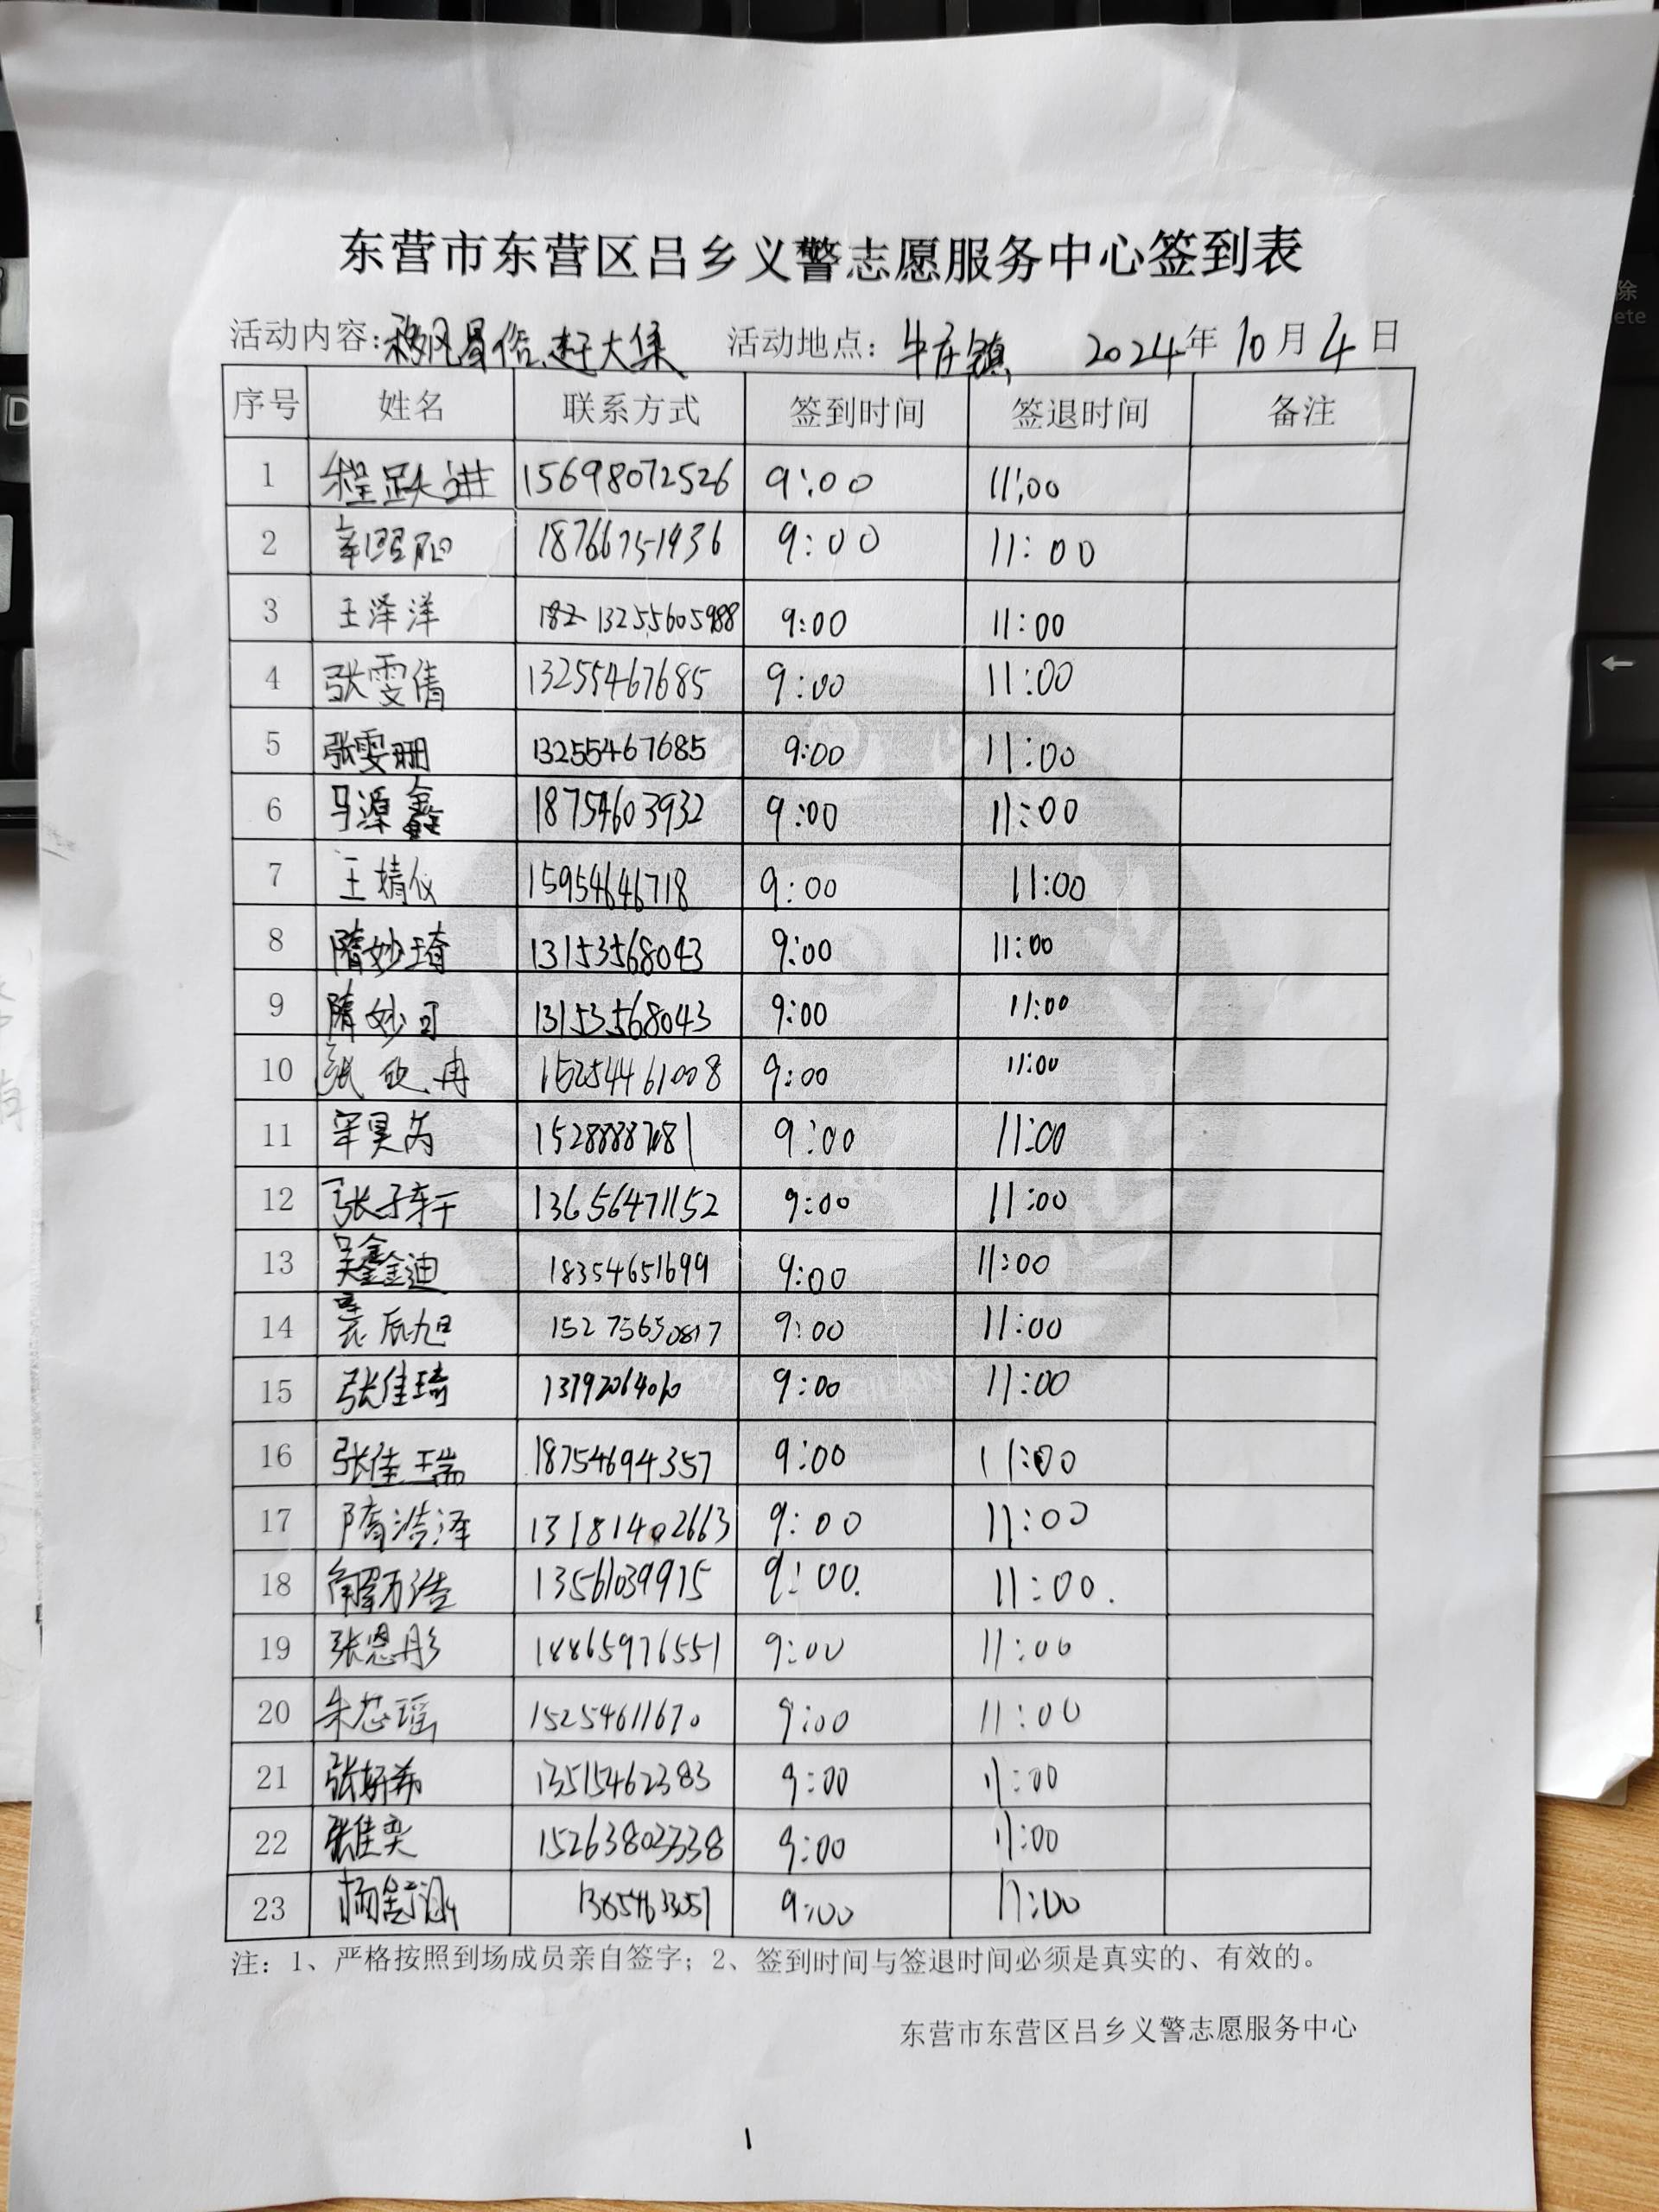 东营市东营区吕乡义警志愿服务中心签到表
活动内容：移风易俗、赶大集 活动地点：牛庄镇 2024年10月4日
序号 姓名 联系方式 签到时间 签退时间 备注
1 程跃进 15698072526 9:00 11:00
2 辛照阳 18766751936 9:00 11:00
3 王泽洋 13255605988 9:00 11:00
4 张雯倩 13255467685 9:00 11:00
5 张雯珊 13255467685 9:00 11:00
6 马源鑫 18754603932 9:00 11:00
7 王婧仪 15954646718 9:00 11:00
8 隋妙琦 13153568043 9:00 11:00
9 隋妙可 13153568043 9:00 11:00
10 张欣冉 15254461008 9:00 11:00
11 9:00 11:00
12 张子轩 13656471152 9:00 11:00
13 吴鑫迪 18354651699 9:00 11:00
14 袁辰旭 15275650817 9:00 11:00
15 张佳琦 9:00 11:00
16 张佳瑞 18754694357 9:00 11:00
17 隋浩泽 13181402663 9:00 11:00
18 解万浩 13561039975 9:00. 11:00.
19 张恩彤 18865976551 9:00 11:00
20 朱芯瑶 15254611670 9:00 11:00
21 张妍希 13515462383 9:00 11:00
22 张佳奕 15263803338 9:00 11:00
23 9:00 11:00
注：1、严格按照到场成员亲自签字；2、签到时间与签退时间必须是真实的、有效的。
东营市东营区吕乡义警志愿服务中心
1